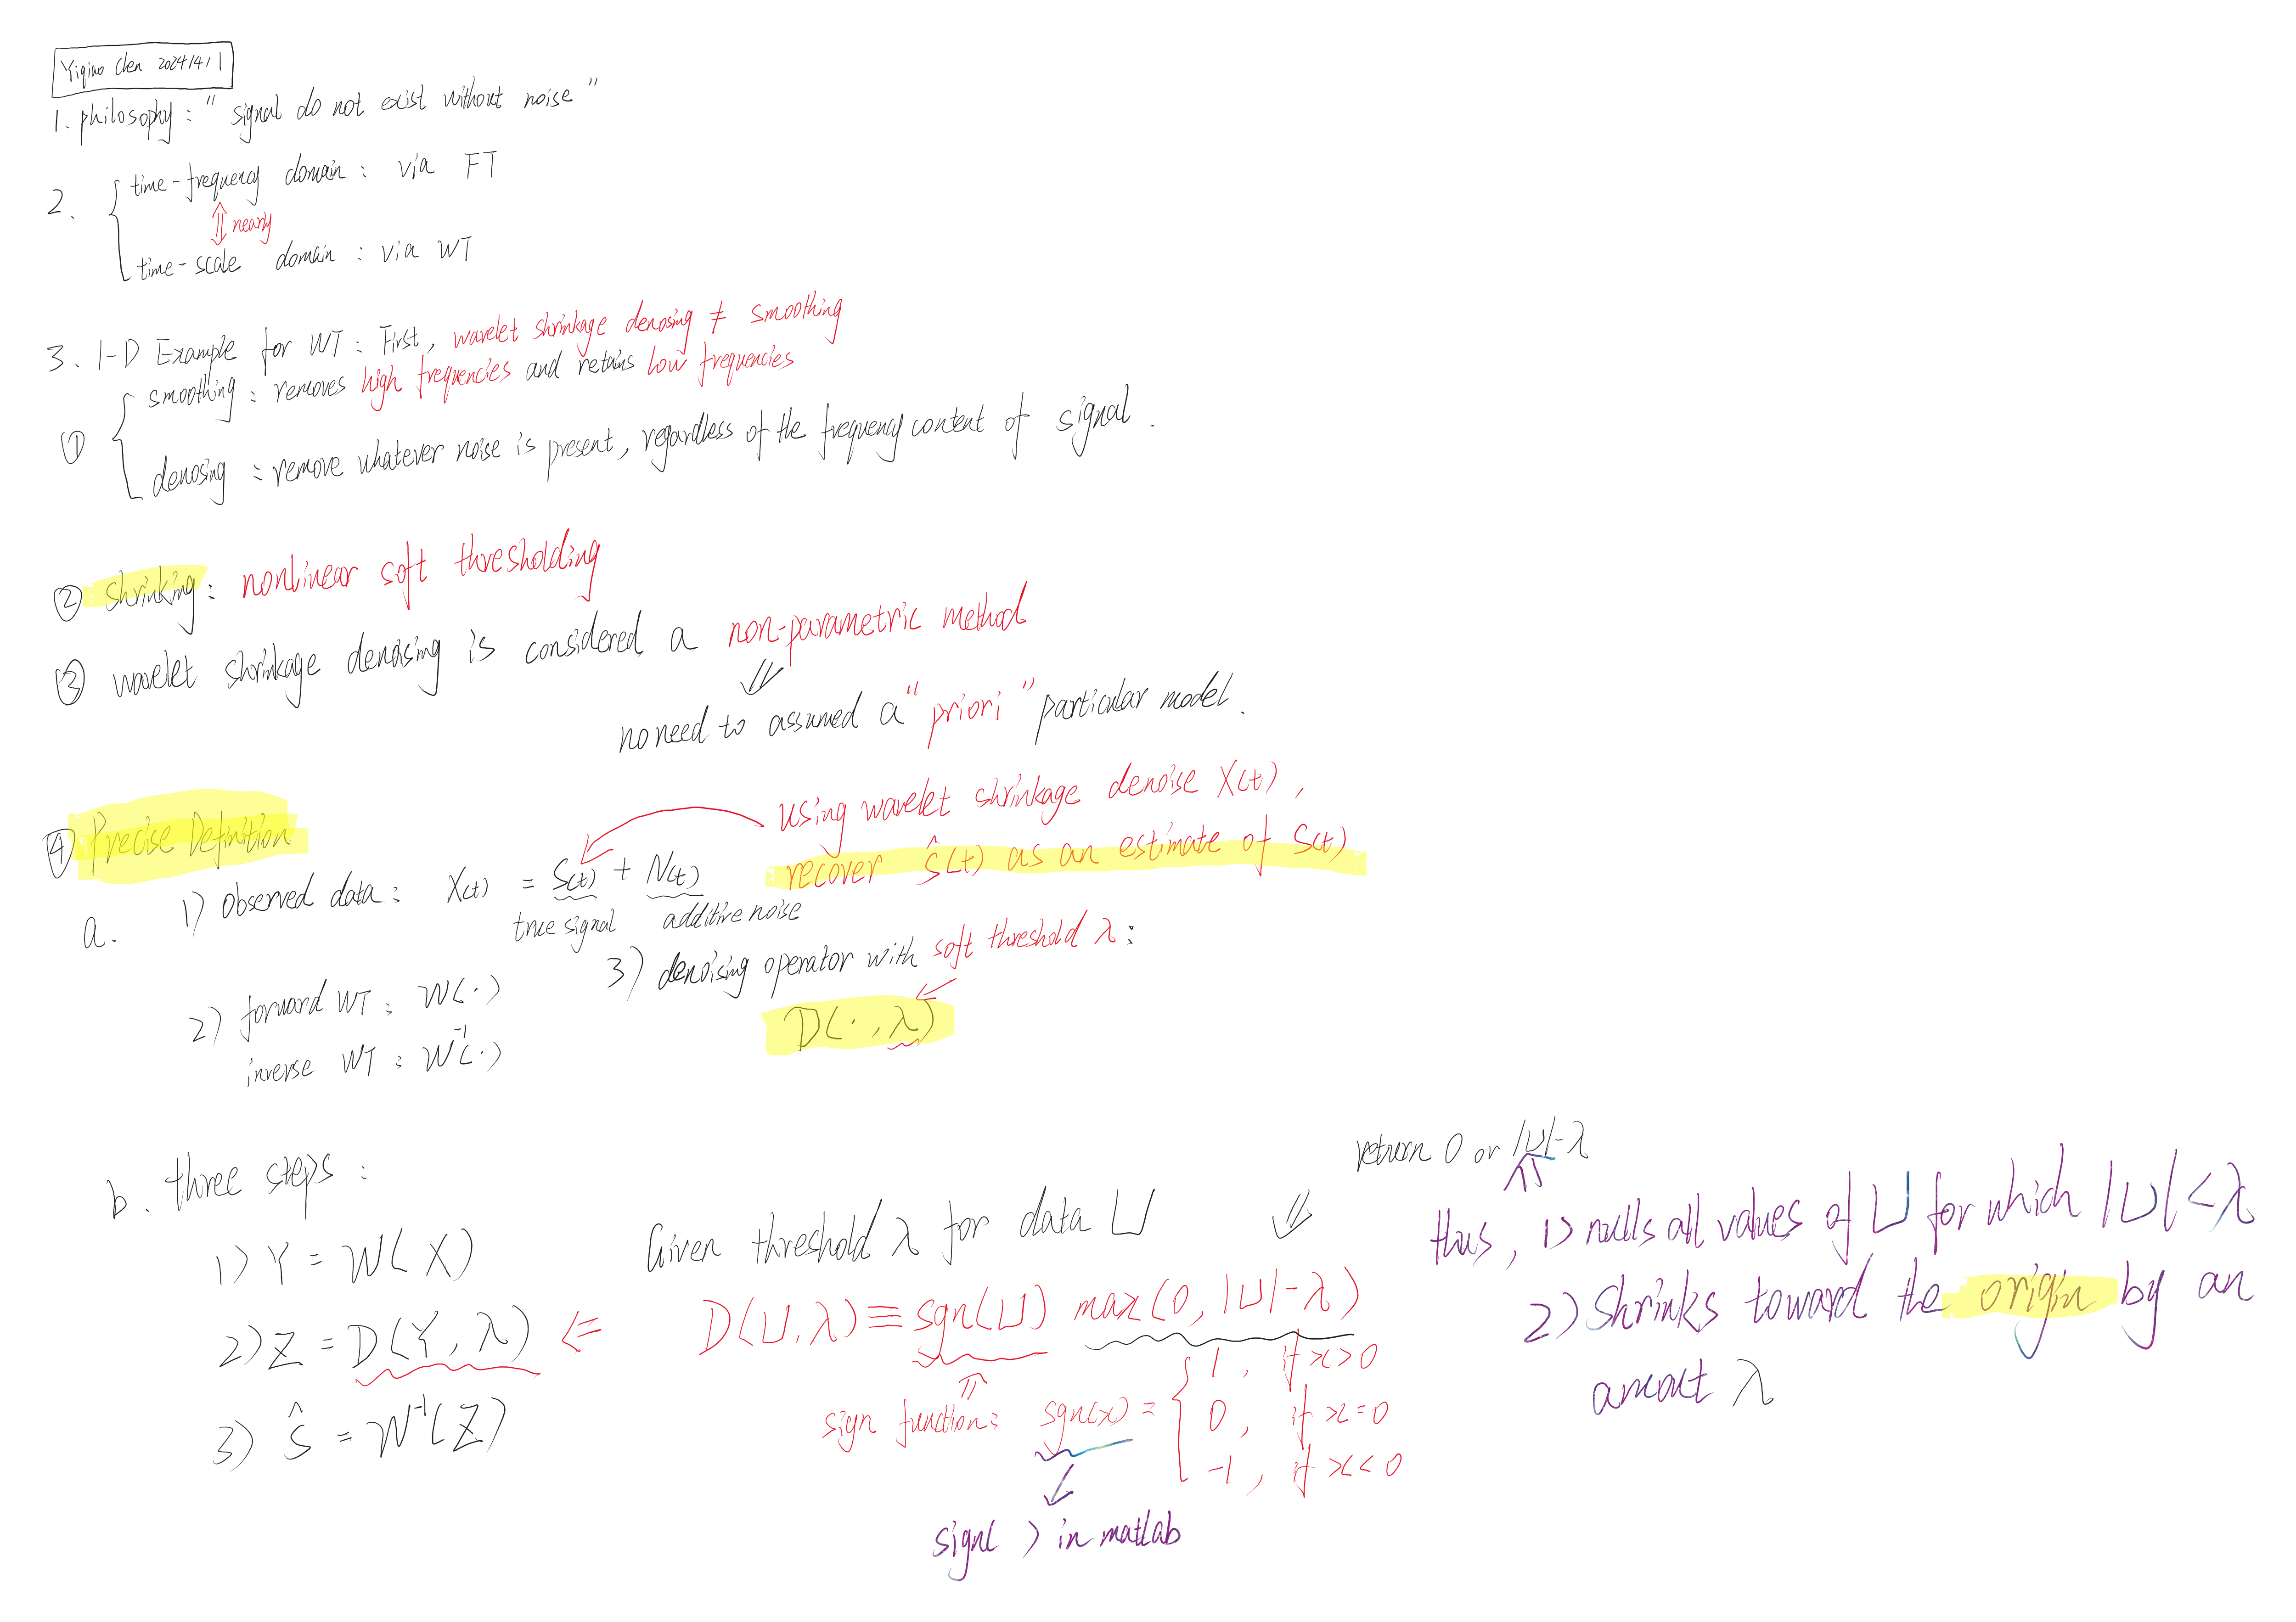 Yiqiao Chen 2024/4/1
1. philosophy: "signal do not exist without noise"
2. { time-frequency domain: via FT
⇕ nearly
time-scale domain: via WT
3. 1-D Example for WT: First, wavelet shrinkage denosing ≠ smoothing
① { smoothing: removes high frequencies and retains low frequencies
denosing: remove whatever noise is present, regardless of the frequency content of signal.
② shrinking: nonlinear soft thresholding
③ wavelet shrinkage denoising is considered a non-parametric method
⇓
no need to assumed a "priori" particular model.
④ Precise Definition
using wavelet shrinkage denoise X(t),
recover ŝ(t) as an estimate of S(t)
a. 1) Observed data: X(t) = S(t) + N(t)
true signal additive noise
2) forward WT: W(·)
inverse WT: W⁻¹(·)
3) denoising operator with soft threshold λ:
D(·, λ)
b. three steps:
1) Y = W(X)
2) Z = D(Y, λ) ⇐
3) Ŝ = W⁻¹(Z)
Given threshold λ for data U
D(U, λ) ≡ sgn(U) max(0, |U|-λ)
sign function: sgn(x) = { 1, if x>0
0, if x=0
-1, if x<0
sign( ) in matlab
return 0 or |U|-λ
thus, 1) nulls all values of U for which |U|<λ
2) Shrinks toward the origin by an
amout λ